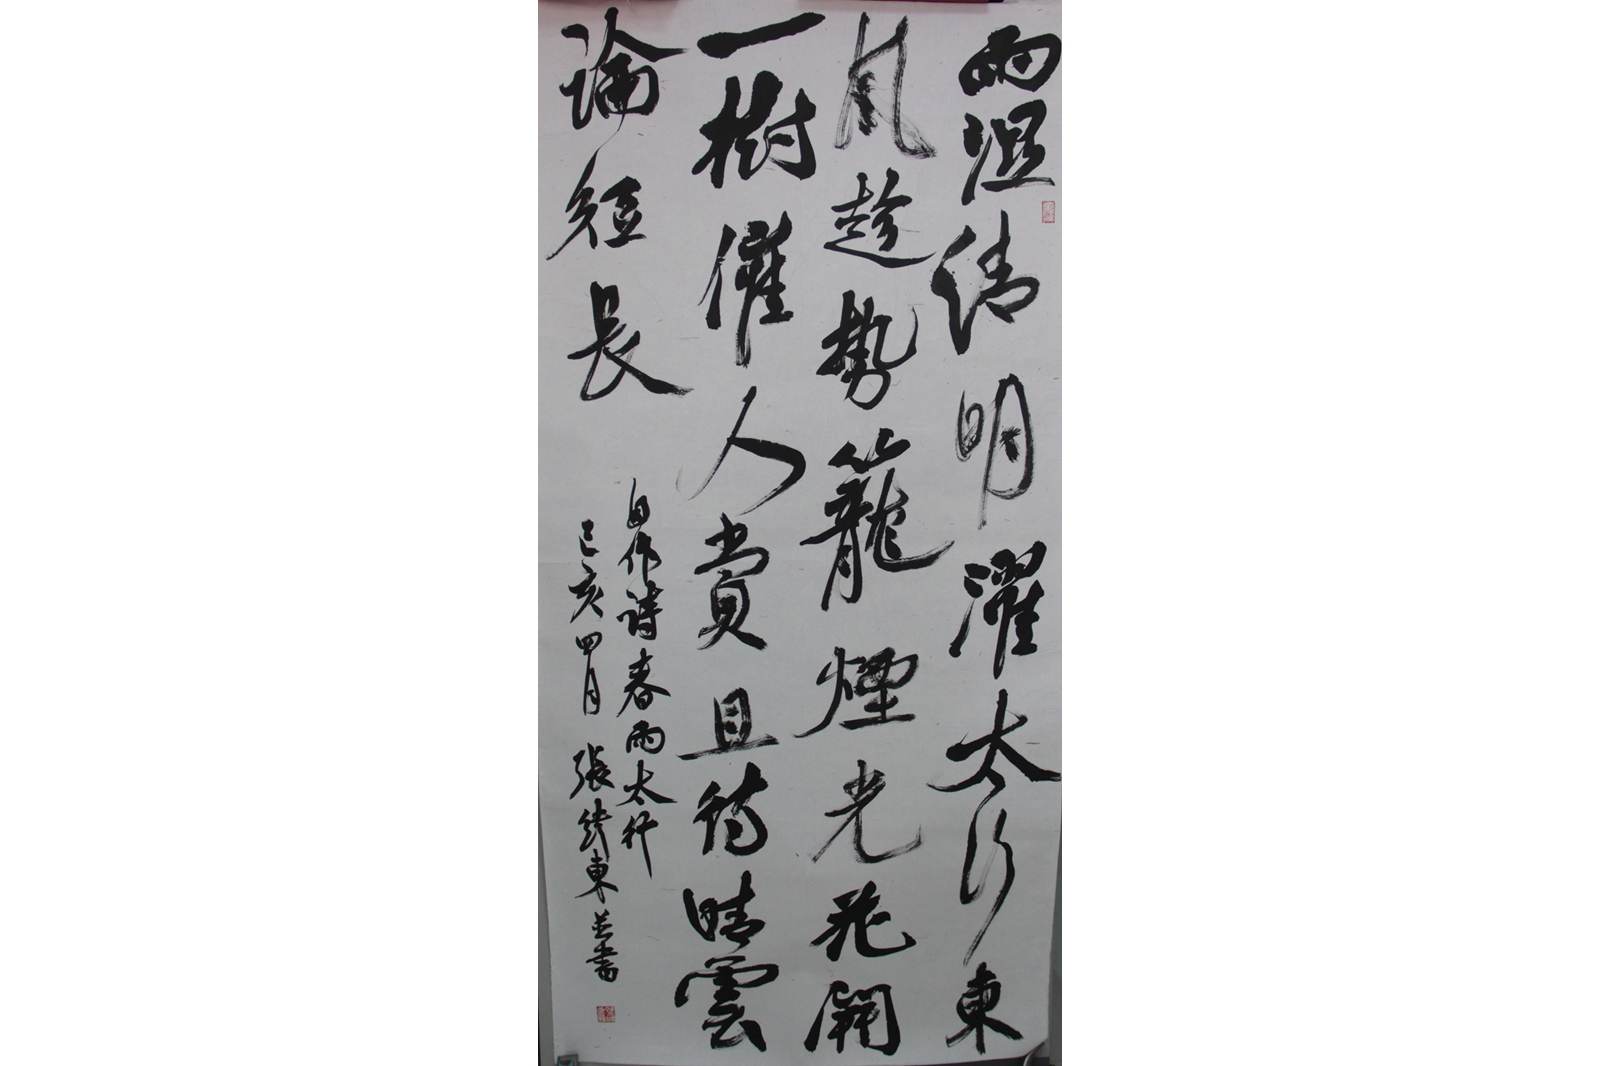 雨湿清明濯太行東
風趁勢籠煙光花開
一樹催人賞且待晴雲
論短長
自作詩春雨太行
己亥四月 張繼東並書